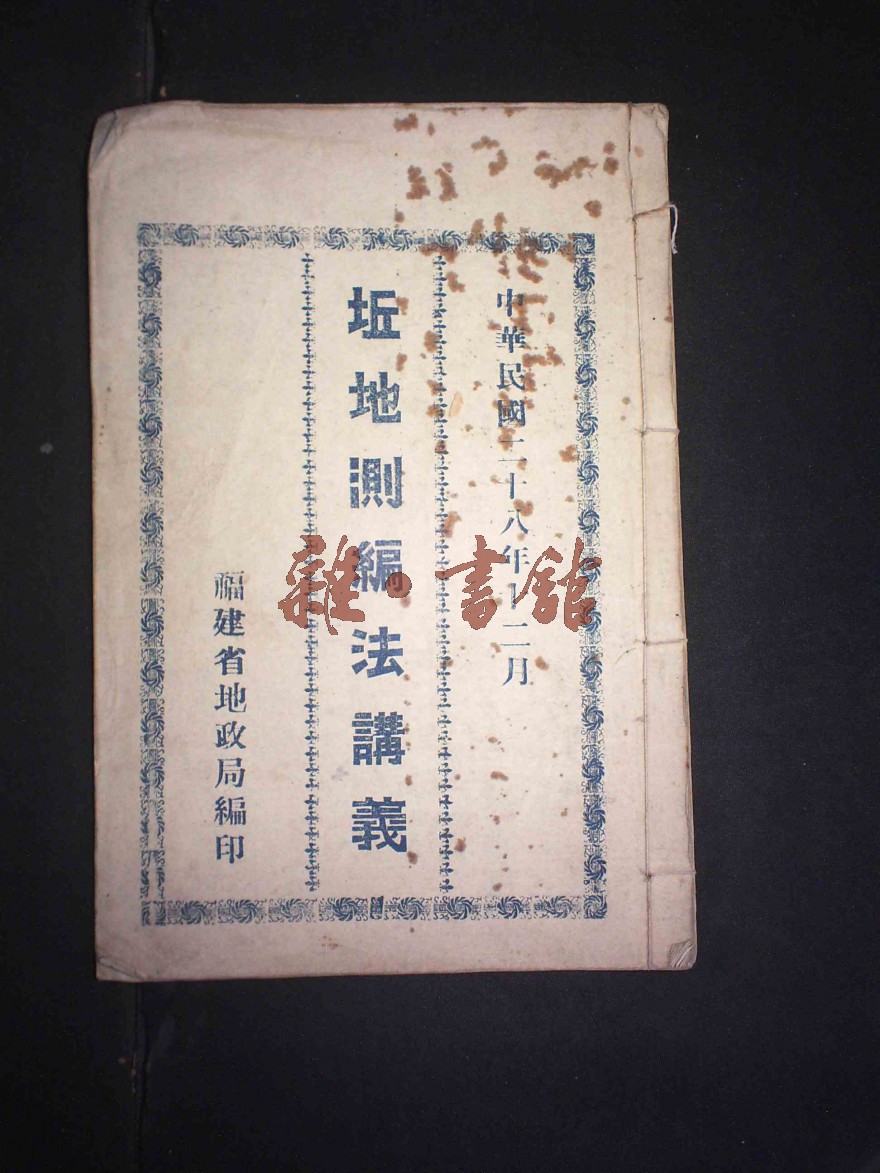 中華民國二十八年十二月
坵地測編法講義
福建省地政局編印
雜·書館